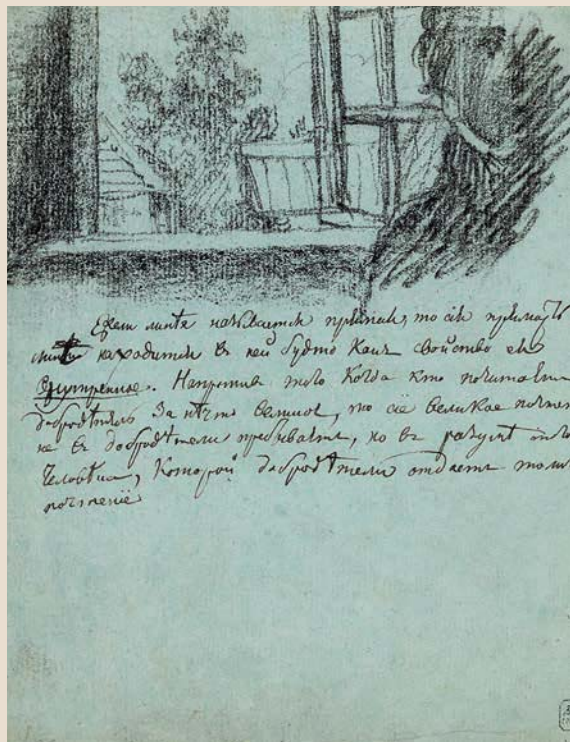 Ежели линѣя называется прямая, то сія прямость
находится въ ней будто какъ свойство ея
Внутренное. Напротивъ того когда кто почитаетъ
добродѣтель за нѣчто великое, то сіе великое
не въ добродѣтели пребываетъ, но въ разумѣ того
Человѣка, которой добродѣтели отдаетъ
почтеніе